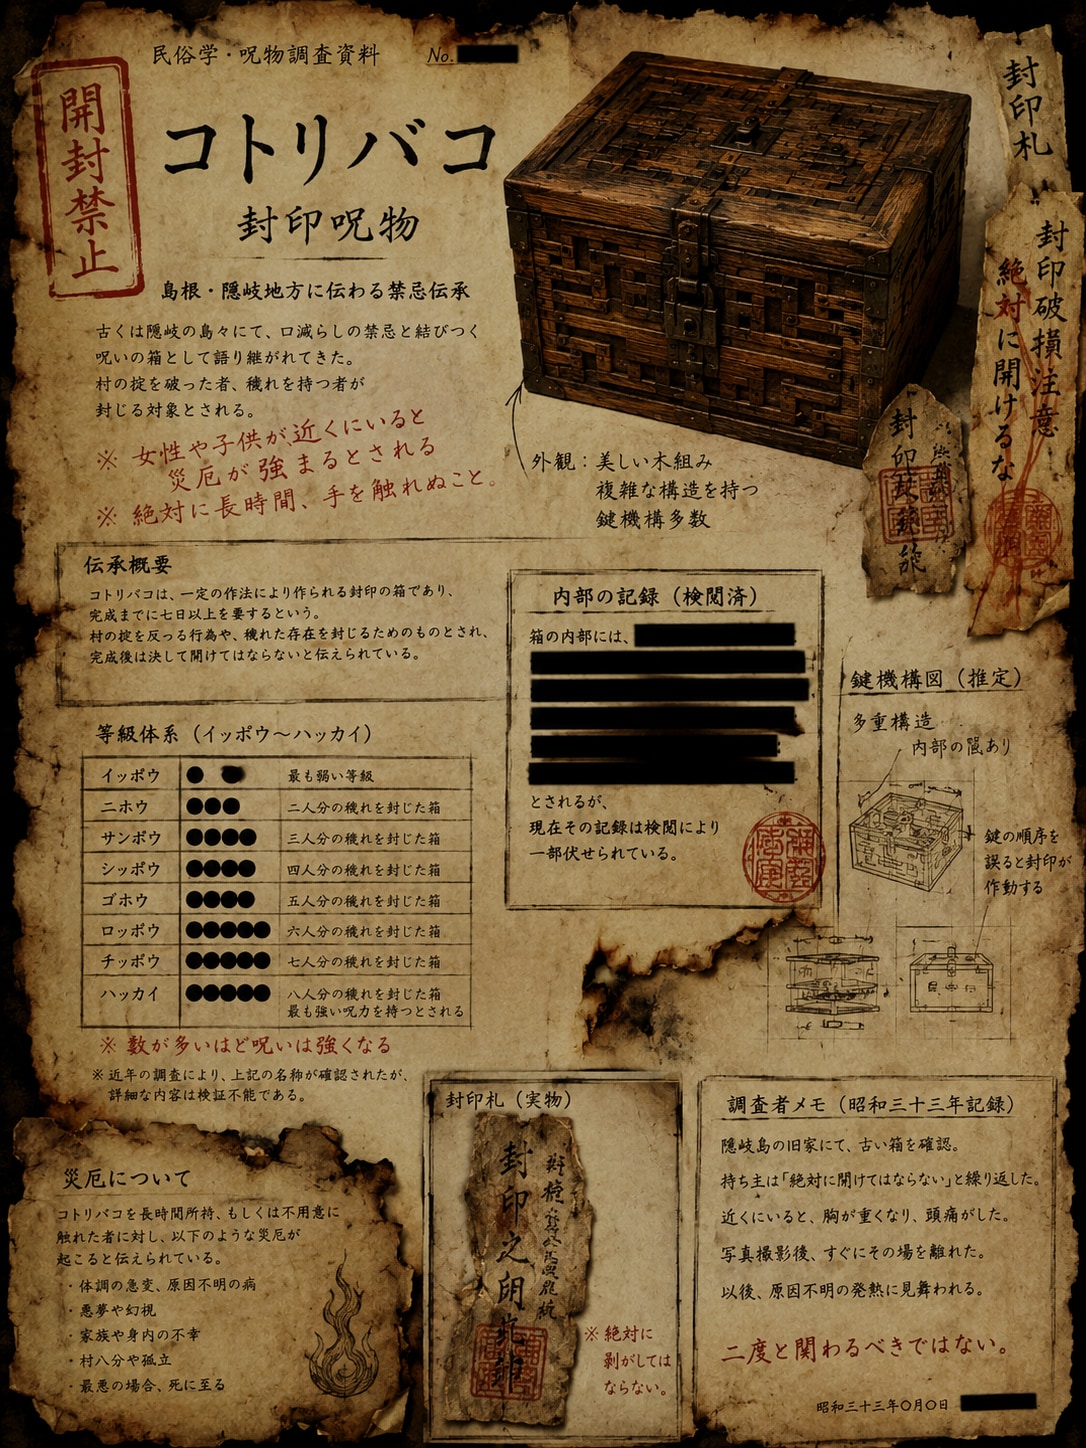 民俗学・呪物調査資料
No.
開封禁止
コトリバコ
封印呪物
島根・隠岐地方に伝わる禁忌伝承
古くは隠岐の島々にて、口減らしの禁忌と結びつく
呪いの箱として語り継がれてきた。
村の掟を破った者、穢れを持つ者が
封じる対象とされる。
※ 女性や子供が近くにいると
災厄が強まるとされる
※ 絶対に長時間、手を触れぬこと。
外観：美しい木組み
複雑な構造を持つ
鍵機構多数
封印札
封印破損注意
絶対に開けるな
封印
伝承概要
コトリバコは、一定の作法により作られる封印の箱であり、
完成までに七日以上を要するという。
村の掟を反っる行為や、穢れた存在を封じるためのものとされ、
完成後は決して開けてはならないと伝えられている。
内部の記録（検閲済）
箱の内部には、
とされるが、
現在その記録は検閲により
一部伏せられている。
鍵機構図（推定）
多重構造
内部の罠あり
鍵の順序を
誤ると封印が
作動する
等級体系（イッポウ〜ハッカイ）
イッポウ ● ● 最も弱い等級
ニホウ ●●● 二人分の穢れを封じた箱
サンポウ ●●●● 三人分の穢れを封じた箱
シッポウ ●●●● 四人分の穢れを封じた箱
ゴホウ ●●●● 五人分の穢れを封じた箱
ロッポウ ●●●●● 六人分の穢れを封じた箱
チッポウ ●●●●● 七人分の穢れを封じた箱
ハッカイ ●●●●● 八人分の穢れを封じた箱
最も強い呪力を持つとされる
※ 数が多いほど呪いは強くなる
※ 近年の調査により、上記の名称が確認されたが、
詳細な内容は検証不能である。
災厄について
コトリバコを長時間所持、もしくは不用意に
触れた者に対し、以下のような災厄が
起こると伝えられている。
・体調の急変、原因不明の病
・悪夢や幻視
・家族や身内の不幸
・村八分や孤立
・最悪の場合、死に至る
封印札（実物）
封印之
※ 絶対に
剥がしては
ならない。
調査者メモ（昭和三十三年記録）
隠岐島の旧家にて、古い箱を確認。
持ち主は「絶対に開けてはならない」と繰り返した。
近くにいると、胸が重くなり、頭痛がした。
写真撮影後、すぐにその場を離れた。
以後、原因不明の発熱に見舞われる。
二度と関わるべきではない。
昭和三十三年〇月〇日